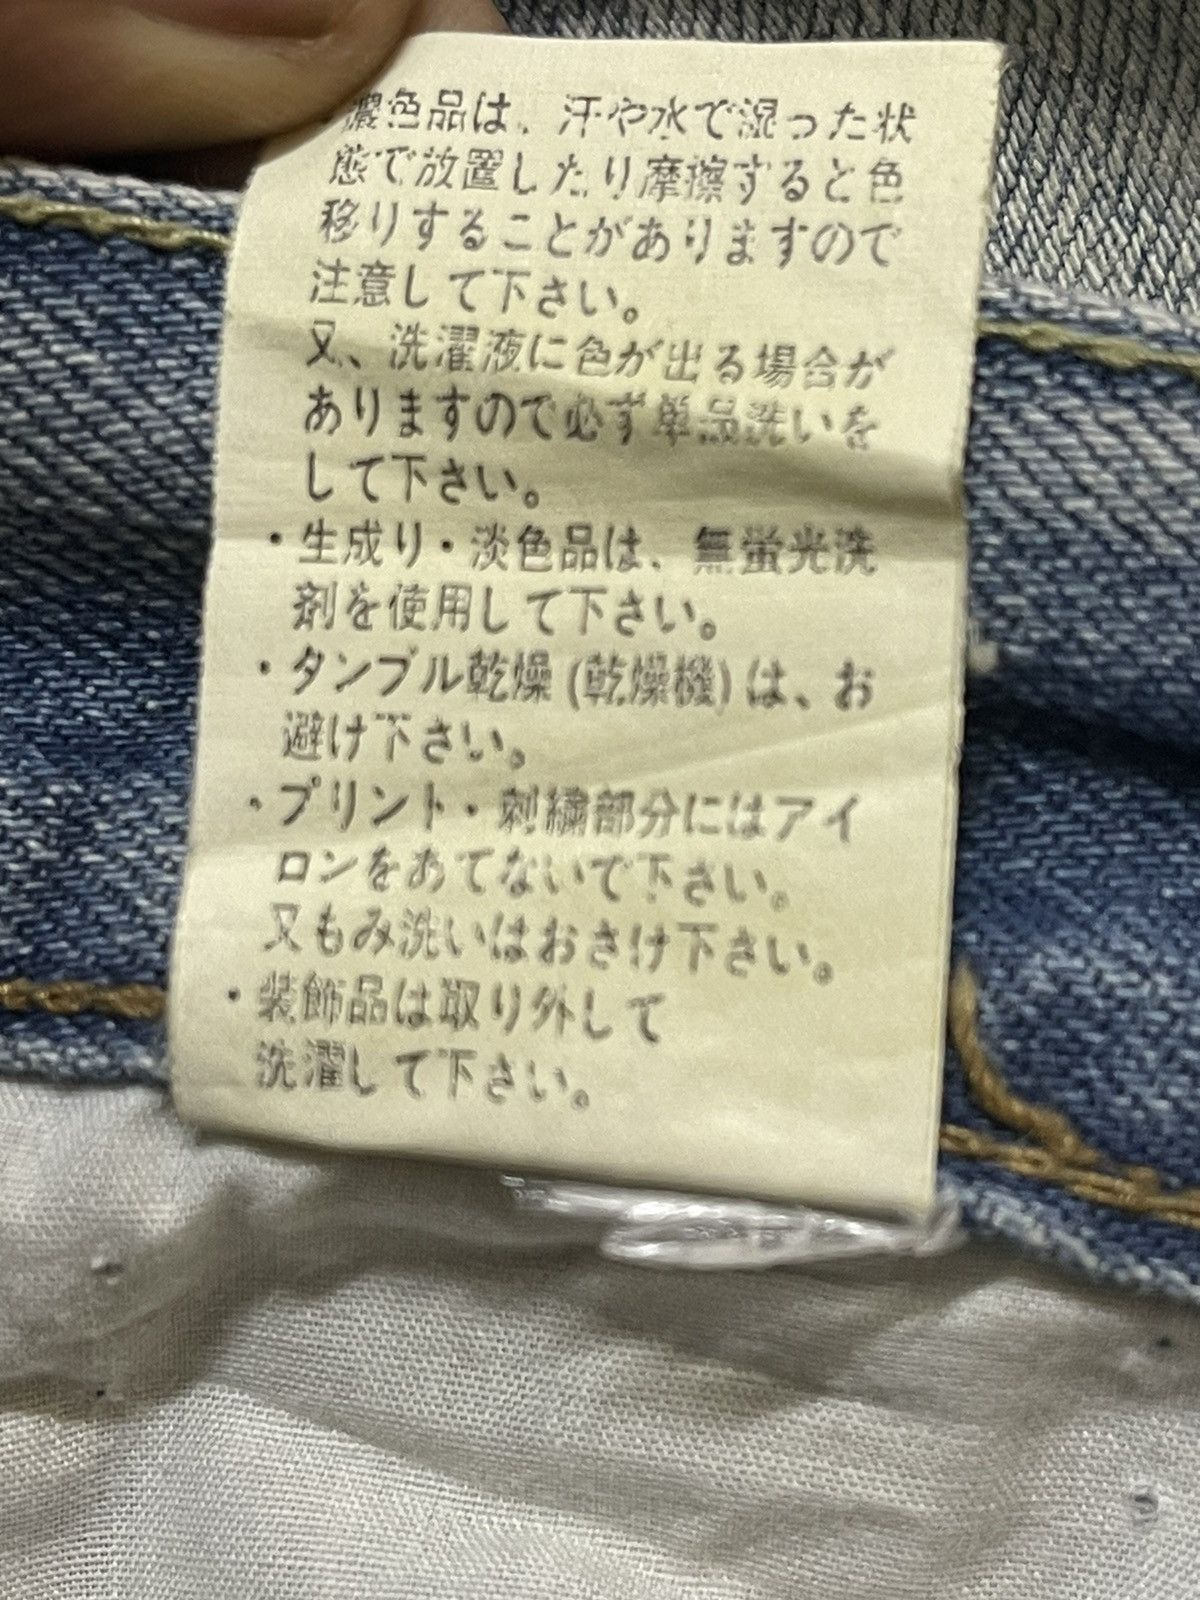 濃色品は、汗や水で湿った状
態で放置したり摩擦すると色
移りすることがありますので
注意して下さい。
又、洗濯液に色が出る場合が
ありますので必ず単品洗いを
して下さい。
・生成り・淡色品は、無蛍光洗
剤を使用して下さい。
・タンブル乾燥(乾燥機)は、お
避け下さい。
・プリント・刺繍部分にはアイ
ロンをあてないで下さい。
又もみ洗いはおさけ下さい。
・装飾品は取り外して
洗濯して下さい。